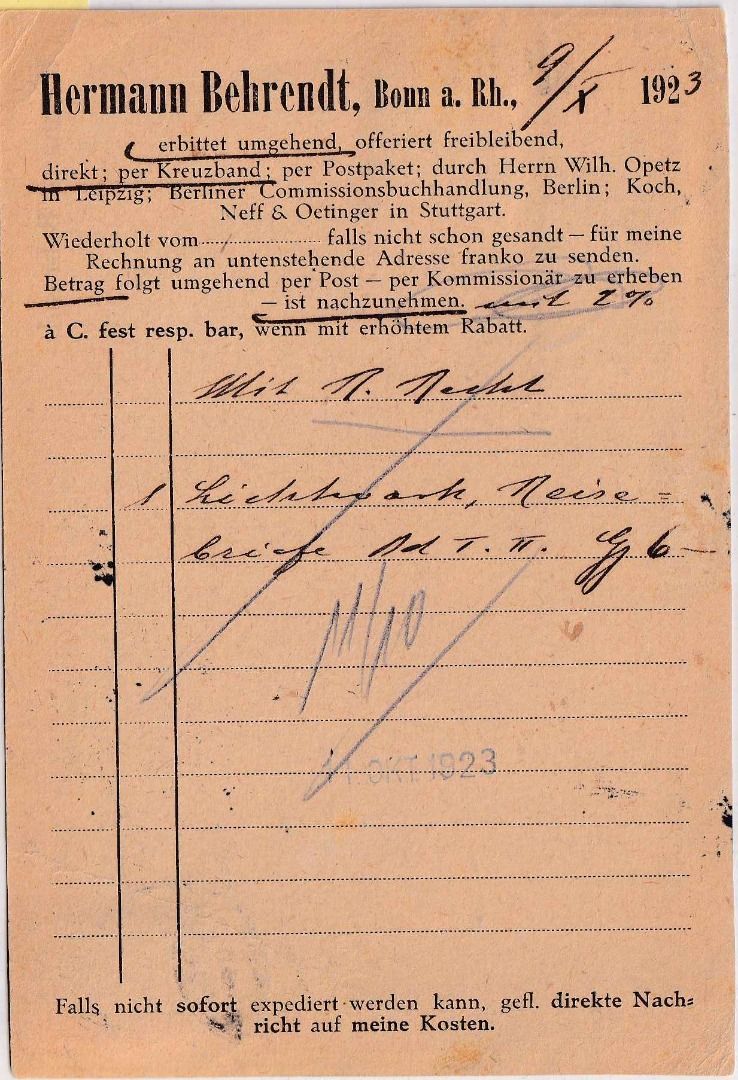 Hermann Behrendt, Bonn a. Rh., 9/X 1923
erbittet umgehend, offeriert freibleibend,
direkt; per Kreuzband; per Postpaket; durch Herrn Wilh. Opetz
in Leipzig; Berliner Commissionsbuchhandlung, Berlin; Koch,
Neff & Oetinger in Stuttgart.
Wiederholt vom ........................ falls nicht schon gesandt — für meine
Rechnung an untenstehende Adresse franko zu senden.
Betrag folgt umgehend per Post — per Kommissionär zu erheben
— ist nachzunehmen. mit 2%
à C. fest resp. bar, wenn mit erhöhtem Rabatt.
Mit R. Recht
1 Lichtwark, Reise=
briefe Bd I. II. 6—
11/10
11. OKT. 1923
Falls nicht sofort expediert werden kann, gefl. direkte Nach=
richt auf meine Kosten.